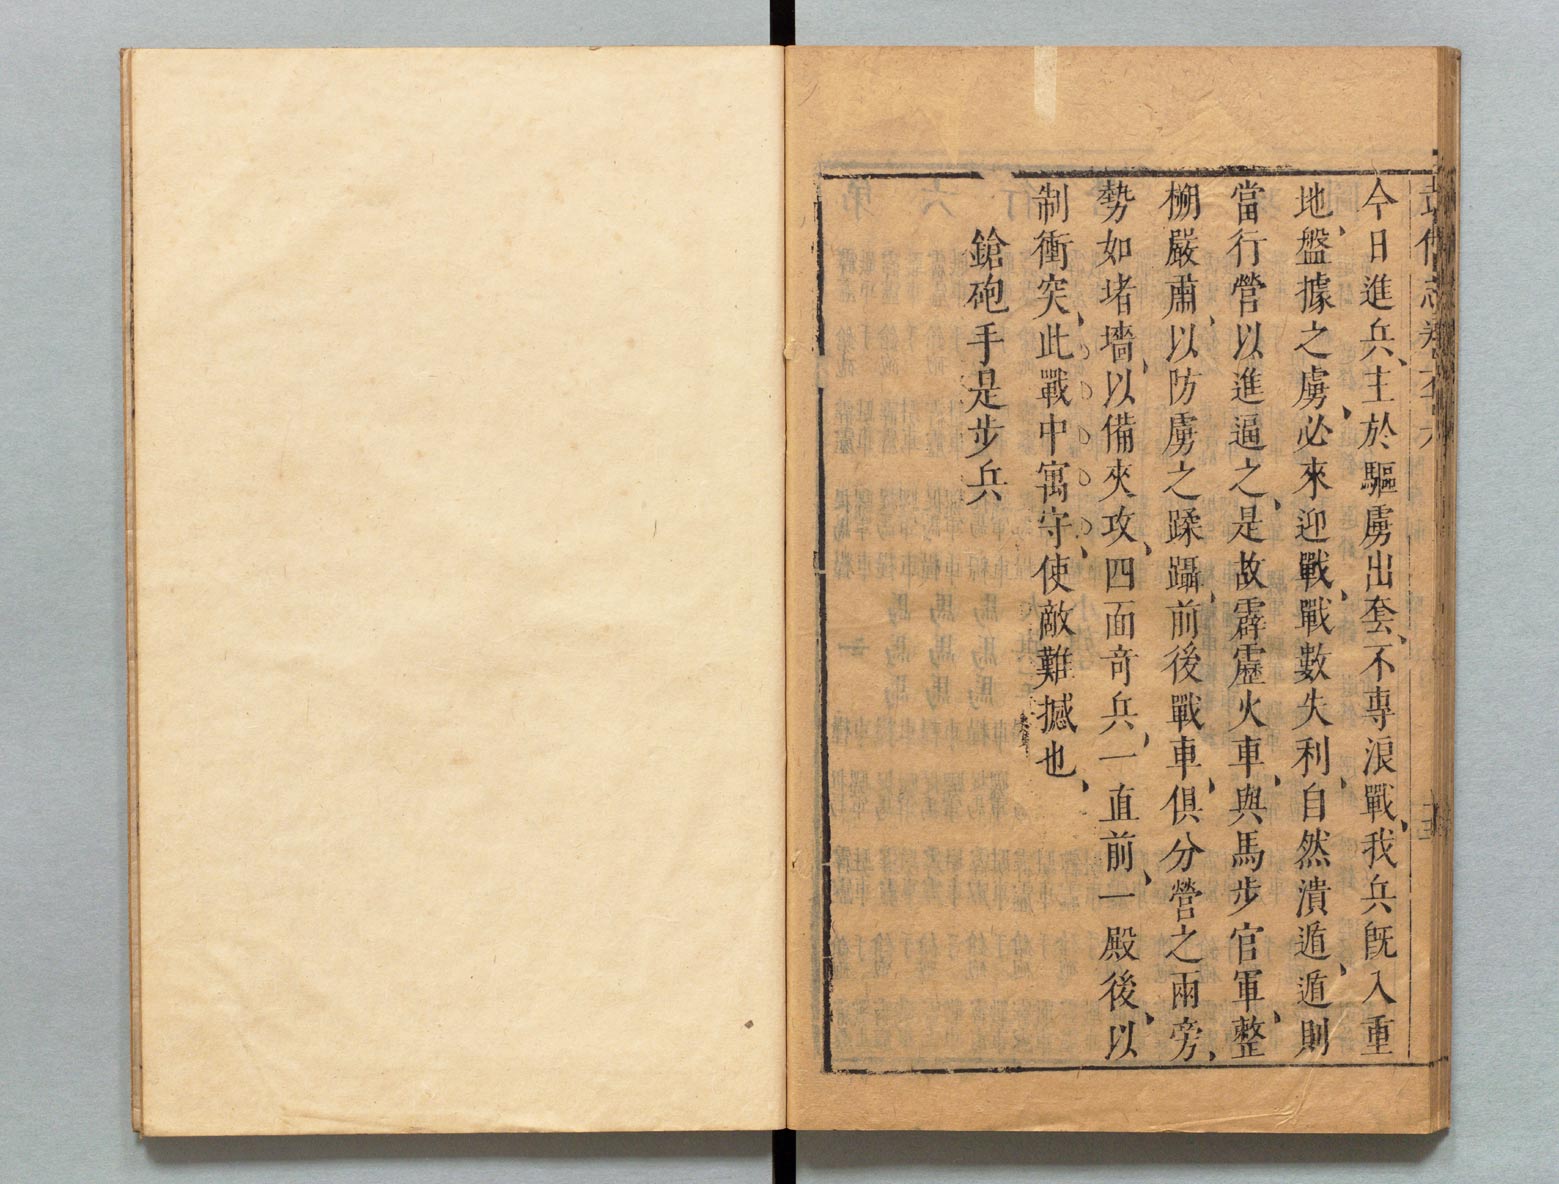 今日進兵、主於驅虜出套、不專浪戰、我兵旣入重
地、盤據之虜、必來迎戰、戰數失利、自然潰遁、遁則
當行營以進逼之、是故霹靂火車、與馬步官軍、整
搠嚴肅、以防虜之蹂躡、前後戰車、俱分營之兩旁、
勢如堵墻、以備夾攻、四面奇兵、一直前、一殿後、以
制衝突、此戰中寓守、使敵難撼也、
鎗砲手是步兵